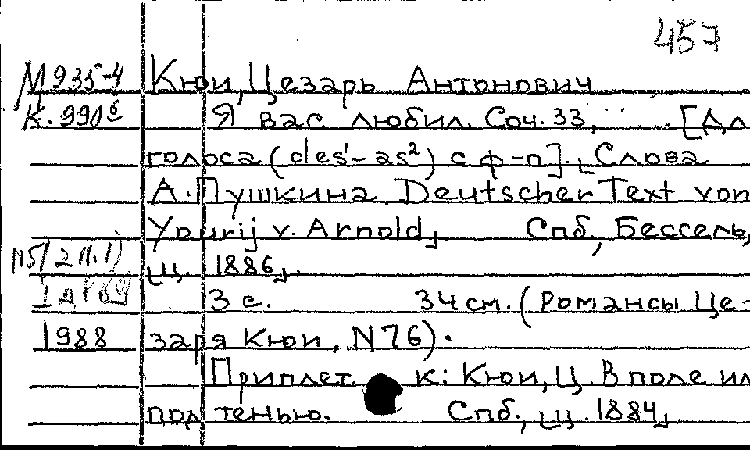 457
М 935-4 Кюи, Цезарь Антонович
К. 990 Я вас любил. Соч. 33, [Дл
голоса (des¹-as²) с ф-п]. [Слова
А. Пушкина Deutscher Text von
Yourij v. Arnold] Спб, Бессель,
ц. 1886].
3 с. 34 см. (Романсы Це-
1988 заря Кюи, N 76).
Приплет. к: Кюи, Ц. В поле ил
под тенью. Спб., ц. 1884]